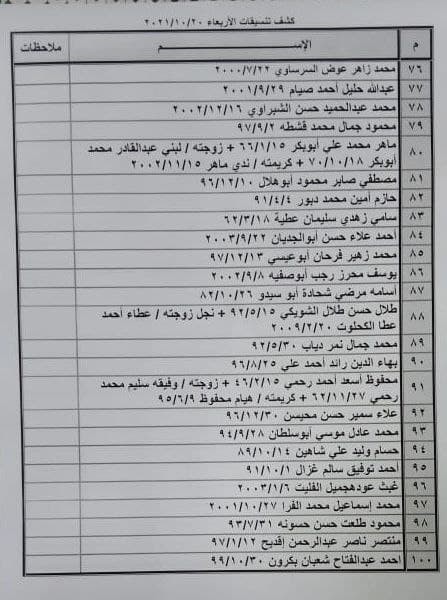 كشف تنسيقات الأربعاء ٢٠٢١/١٠/٢٠
م الإســـم ملاحظات
٧٦ محمد زاهر عوض السرساوي ٢٠٠٠/٧/٢٢
٧٧ عبدالله خليل أحمد صيام ٢٠٠١/٩/٢٩
٧٨ محمد عبدالحميد حسن الشبراوي ٢٠٠٢/١٢/١٦
٧٩ محمود جمال محمد قشطه ٩٧/٩/٢
٨٠ ماهر محمد علي أبوبكر ٦٦/١/١٥ + زوجته / لبني عبدالقادر محمد
أبوبكر ٧٠/١٠/١٨ + كريمته / ندي ماهر ٢٠٠٢/١١/١٥
٨١ مصطفي صابر محمود أبوهلال ٩٦/١٢/١٠
٨٢ حازم أمين محمد دبور ٩١/٤/٤
٨٣ سامي زهدي سليمان عطية ٦٢/٣/١٨
٨٤ أحمد علاء حسن أبوالجديان ٢٠٠٣/٩/٢٢
٨٥ محمد زهير فرحان أبوعيسي ٩٧/١٢/١٣
٨٦ يوسف محرز رجب أبوصفيه ٢٠٠٢/٩/٨
٨٧ أسامه مرضي شحادة أبو سيدو ٨٢/١٠/٢٦
٨٨ طلال حسن طلال الشويكي ٩٢/٥/١٥ + نجل زوجته / عطاء أحمد
عطا الكحلوت ٢٠٠٩/٢/٢٠
٨٩ محمد جمال نمر دياب ٩٢/٥/٣٠
٩٠ بهاء الدين رائد أحمد علي ٩٦/٨/٢٥
٩١ محفوظ أسعد أحمد رحمي ٤٦/٢/١٥ + زوجته / وفيقه سليم محمد
رحمي ٦٢/١١/٢٧ + كريمته / هيام محفوظ ٩٥/٦/٩
٩٢ علاء سمير حسن محيسن ٩٦/١٢/٣٠
٩٣ محمد عادل موسي أبوسلطان ٩٤/٩/٢٨
٩٤ حسام وليد علي شاهين ٨٩/١٠/١٤
٩٥ أحمد توفيق سالم غزال ٩١/١٠/١
٩٦ غيث عودهجميل الفليت ٢٠٠٣/١/٦
٩٧ محمد إسماعيل محمد الفرا ٢٠٠١/١٠/٢٧
٩٨ محمود طلعت حسن حسونه ٩٣/٧/٣١
٩٩ منتصر ناصر عبدالرحمن إقديح ٩٧/١/١٢
١٠٠ احمد عبدالفتاح شعبان بكرون ٩٩/١٠/٣٠